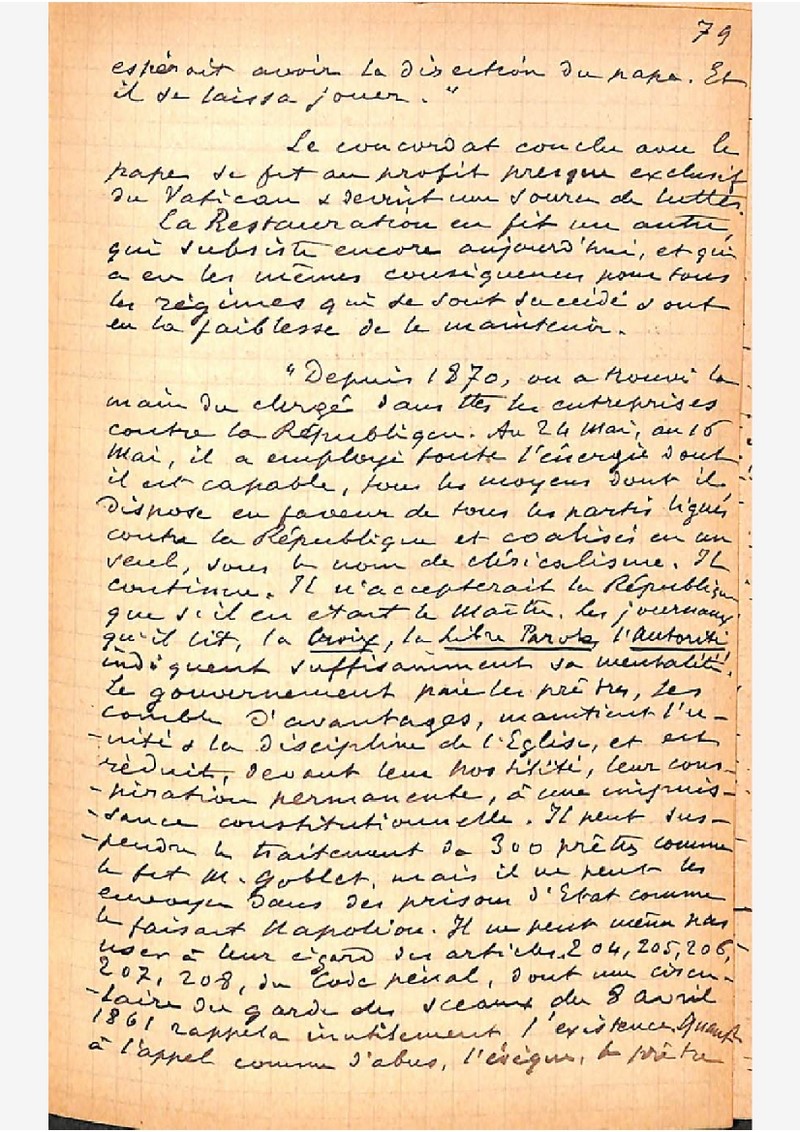 79
espérait avoir la direction du pape. Et
il se laissa jouer."
Le concordat conclu avec le
pape se fit au profit presque exclusif
du Vatican & devint une source de luttes.
La Restauration en fit un autre,
qui subsiste encore aujourd'hui, et qui
a eu les mêmes conséquences pour tous
les régimes qui se sont succédé & ont
eu la faiblesse de le maintenir.
"Depuis 1870, on a trouvé la
main du clergé dans ttes les entreprises
contre la République. Au 24 Mai, au 16
Mai, il a employé toute l'énergie dont
il est capable, tous les moyens dont il
dispose en faveur de tous les partis ligués
contre la République et coalisés en un
seul, sous le nom de cléricalisme. Il
continue. Il n'accepterait la République
que s'il en était le Maître. les journaux
qu'il lit, la Croix, la Libre Parole, l'Autorité
indiquent suffisamment sa mentalité.
Le gouvernement paie les prêtres, les
comble d'avantages, maintient l'u-
-nité & la discipline de l'Eglise, et est
réduit, devant leur hostilité, leur cons-
-piration permanente, à une impuis-
-sance constitutionnelle. Il peut sus-
-pendre le traitement de 300 prêtres comme
le fit M. Goblet, mais il ne peut les
envoyer dans des prisons d'Etat comme
le faisait Napoléon. Il ne peut même pas
user à leur égard des articles 204, 205, 206,
207, 208, du Code pénal, dont une circu-
-laire du garde des sceaux du 8 avril
1861 rappela inutilement l'existence. Quant
à l'appel comme d'abus, l'évêque, le prêtre